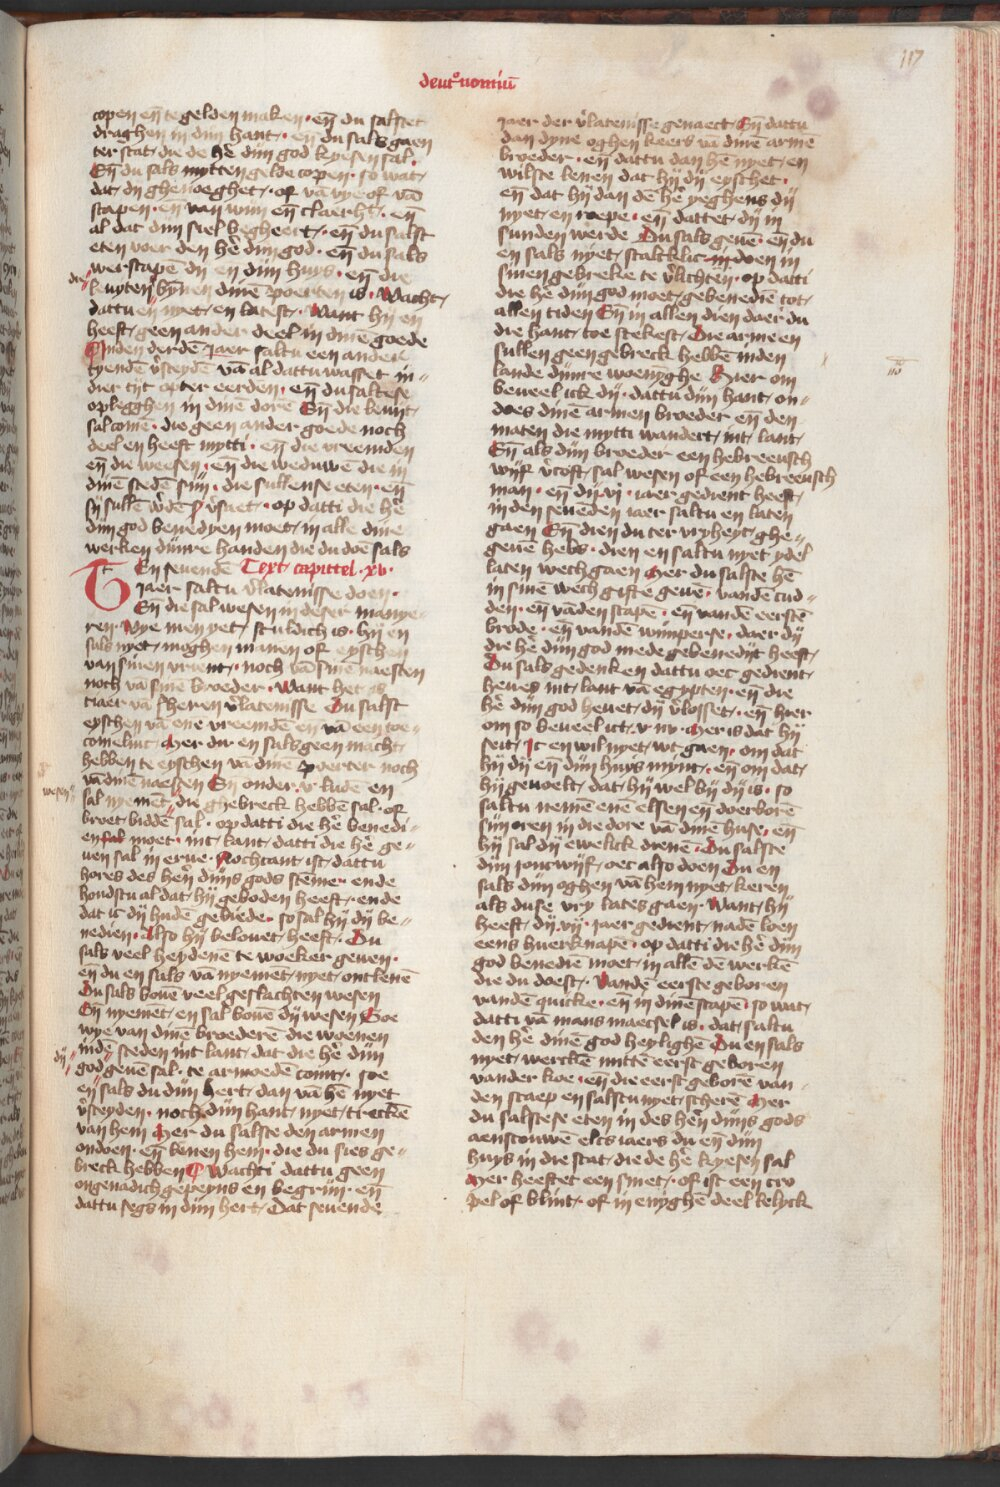 117
deut'onomiū
copen eñ te gelden maken · eñ du salstet
draghen in dijn hant · eñ du sals gaen
ter stat die de hē dijn god kyesen sal ·
Eñ du sals mytten gelde copen · so wat
dat dij ghenoeghet · of vā vye of vā
scapen · eñ van wijn eñ claerht · eñ
al dat dijn siel begheert · eñ du salst
eten voer den hē dijn god · eñ du sals
werscapē dij eñ dijn huys · eñ die
die
leuyten bȳnen dinē poerten is · Wacht
dattu en nyet en latest · Want hij en
heeft geen ander deel in dinē goede
Inden derdē jaer saltu een ander
tyendē v̄steydē vā al dattu wasset in
dier tijt opter eerden · eñ du saltese
oplegghen in dinē dorē Eñ die leuijt
sal comē · die geen ander goede noch
deel en heeft mytti · eñ die vreemden
eñ die weesen · eñ die weduwē die in
dinē stedē sijn · die sullense eten · eñ
sij sullē w̄dē v̄saet · op datti die hē
dijn god benedyen moet in alle dine
werken dijnre handen die du doē sals
En seuendē Text capittel · xv ·
jaer saltu v̄latenisse doen ·
Eñ die sal wesen in deser manye
ren · Wye men yet sculdich is · hij en
sals nyet moghen manen of eyschen
van sinen vrient · noch vā sinē naesten
noch vā sinē broeder · Want het is
tiaer vā sheren v̄latenisse Du salst
eyschen vā ene vreemdē eñ vā een toe
comelinc · Mer du en sals geen macht
hebben te eyschen vā dinē poerter noch
vā dinē naesten Eñ onder v luden en
wesen
sal nyemēt die ghebreck hebbē sal · of
broet biddē sal · op datti die hē benedi
en sal moet · int lant datti die hē ge
uen sal in erue · Nochtant ist dattu
hores des herē dijns gods stēme · ende
houdstu al dat hij geboden heeft · ende
dat ic dij hudē gebiede · so sal hij dij be
nedien · Also hij belouet heeft · Du
sals veel heydenē te woeker geuen ·
eñ du en sals vā nyemēt nyet ontlenē
Du sals bouē veel geslachten wesen
Eñ nyemēt en sal bouē dij wesen Soe
wye van dinē broederē die woenen
indē steden int lant dat die hē dijn
dij
god geuē sal · te armoedē comt · soe
en sals du dijn hert dan vā hē nyet
v̄steyden · noch dijn hant nyet treckē
van hem Mer du salste den armen
ondoen · eñ lenen hem · die du sies ge
breck hebben Wachti dattu geen
ongenadich gepeyns en begrijn · eñ
dattu segs in dijn hert Dat seuende
jaer der v̄latenisse genaect Eñ dattu
dan dyne oghen keers vā dinē armē
broeder · eñ dattu dan hē nyet en
wilste lenen dat hij dij eyschet ·
eñ dat hij dan dē hē yeghens dij
nyet en roepe · eñ dattet dij in
sunden werde Du sals geuē · eñ du
en sals nyet scalklic in doen in
sinen gebreke te v̄lichten · op datti
die hē dijn god moet gebenediē tot
allen tiden Eñ in allen dien daer du
die hant toe stekest · Die arme en
sullen geen gebreck hebbē inden
lande dijnre woenynghe Hier om
beueel ick dij · dattu dijn hant on
does dinē armen broeder eñ den
maten die mytti wandert int lant
Eñ als dijn broeder een hebreeusch
wijf v̄coft sal wesen of een hebreeusch
man · eñ dij · vj · iaer gedient heeft
in den seuēden iaer saltu en laten
gaen Eñ dien du ter vryheyt ghe
geuē hebs · dien en saltu nyet ydel
laten wech gaen Mer du salste hē
in sinē wech gifte geuē · vandē cud
den · eñ vā den scapē · eñ vandē eerstē
brode · eñ vandē wijnperse · daer dij
die hē dijn god mede gebenedijt heeft
Du sals gedenken dattu oec gedient
heues int lant vā egypten · eñ die
hē dijn god heuet dij v̄losset · eñ hier
om so beueel ict v nv · Mer is dat hij
seit · Ic en wil nyet wt gaen · om dat
hij dij eñ dijn huys mynt · eñ om dat
hij geuoelt dat hij wel bij dij is · so
saltu nemē enē elsen eñ doerborē
sijn oren in die dore vā dinē huse · eñ
hij sal dij ewelick dienē · Du salste
dijn joncwijf oec also doen Du en
sals dijn oghen vā hem nyet keren
als duse vry lates gaen · Want hij
heeft dij · vij · iaer gedient nadē loen
eens huerknapē · op datti die hē dijn
god benediē moet in allē dē werkē
die du doest · Vandē eerste geboren
vandē quicke · eñ in dinē scapē · so wat
datti vā mans maecsel is · dat saltu
den hē dinē god heylighē Du en sals
nyet werckē mittē eerst geboren
vander koe · eñ die eerst geborē van
den scaep en salstu nyet scherē Mer
du salstese eten in des herē dijns gods
aenscouwē elcs iaers du eñ dijn
huys in die stat die de hē kyesen sal
Mer heeftet een smet · of ist een cro
pel of blint · of in enyghē deel lelyck